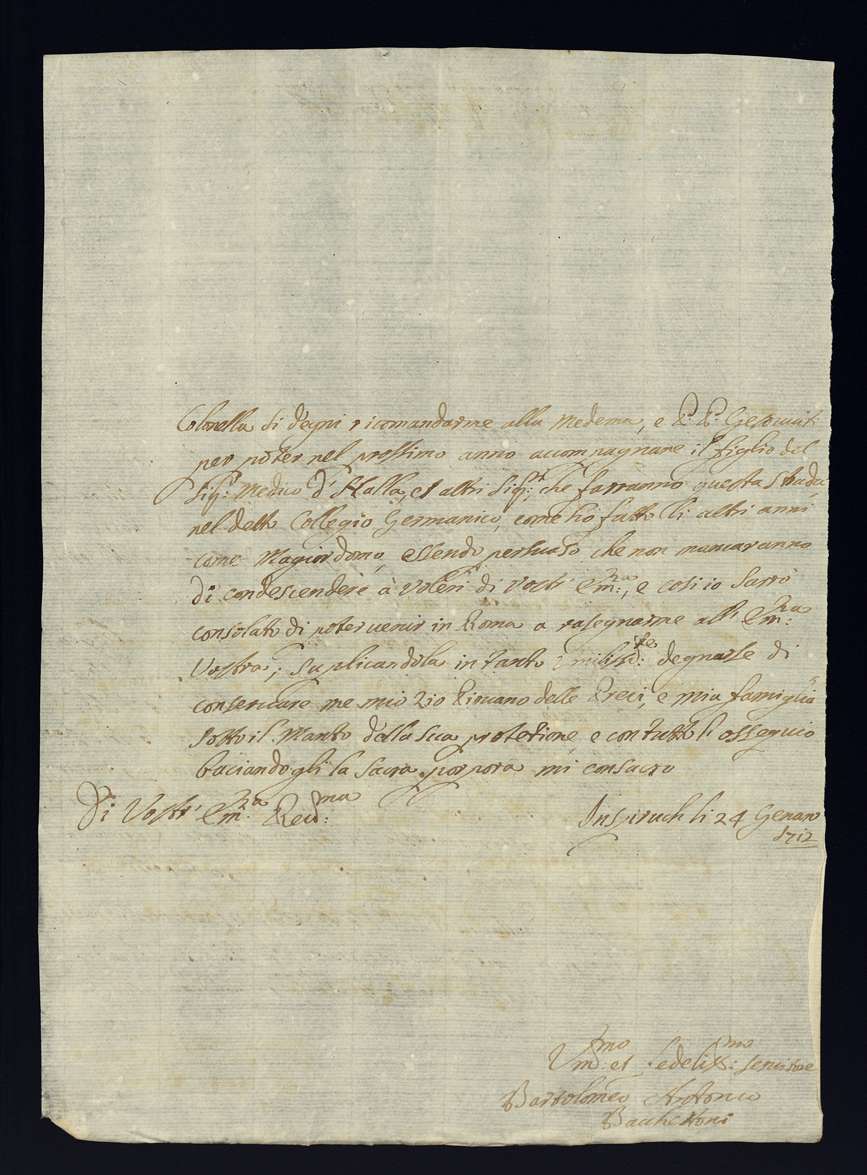 Colonella si degni ricomandarme alla medema, e P. P. Gesouiti
per poter nel prossimo anno accompagnare il figlio del
Sig.r Medico d'Halla, et altri Sig.ri che farranno questa strada
nel detto Collegio Germanico, come hò fatto li altri anni
come Magiordomo, essendo persuaso che non mancaranno
di condescendere à Voleri di Vostr' Em.za, e così io sarrò
consolato di poter venir in Roma a rasegnarme all' Em.za
Vostra; suplicandola in tanto degnarse di
conseruare me mio Zio Piouano delle Preci, e mia famiglia
sotto il Manto della sua protetione, e con tutto li ossequio
baciandogli la sacra porpora mi consacro
Di Vostr' Em.za Reu.ma Inspruch li 24 Genaro
1712
Vm.mo et fedeliss.mo seruitore
Bartolomeo Antonio
Bacchettoni